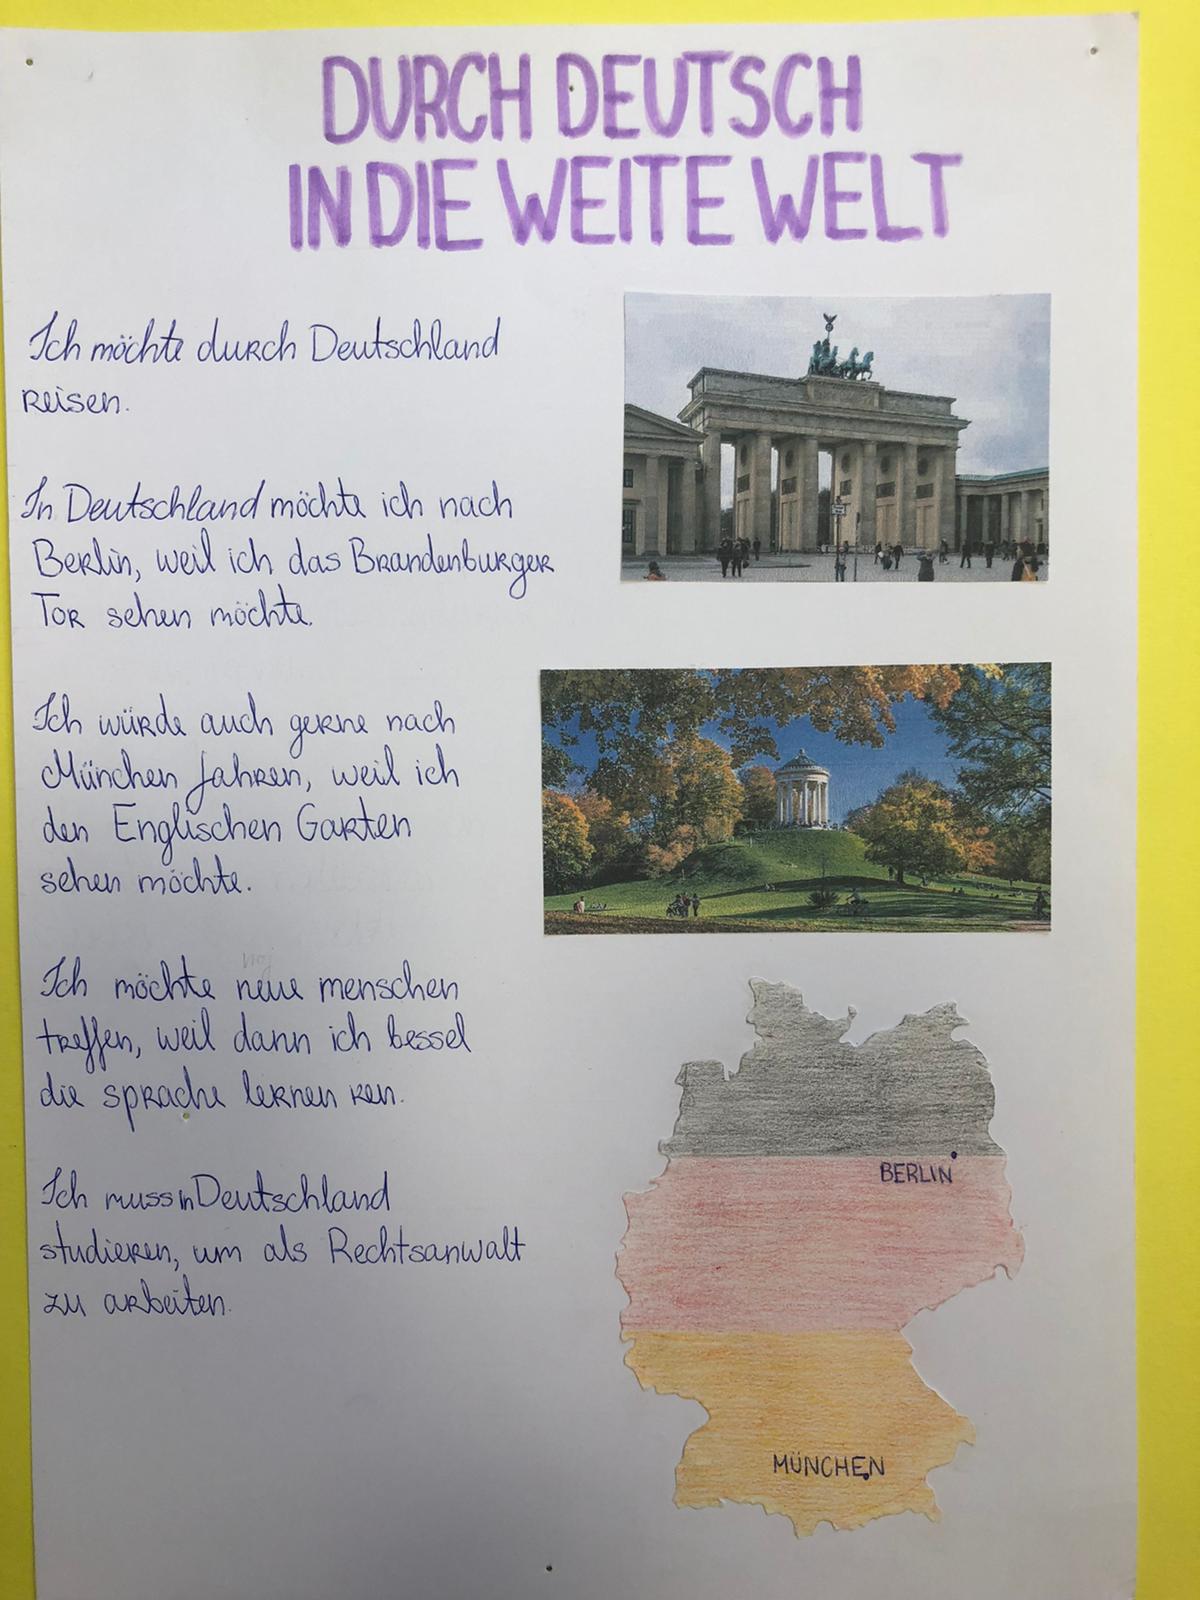 DURCH DEUTSCH
IN DIE WEITE WELT
Ich möchte durch Deutschland
reisen.
In Deutschland möchte ich nach
Berlin, weil ich das Brandenburger
Tor sehen möchte.
Ich würde auch gerne nach
München fahren, weil ich
den Englischen Garten
sehen möchte.
Ich möchte neue menschen
treffen, weil dann ich bessel
die sprache lernen ken.
Ich muss in Deutschland
studieren, um als Rechtsanwalt
zu arbeiten.
BERLIN
MÜNCHEN